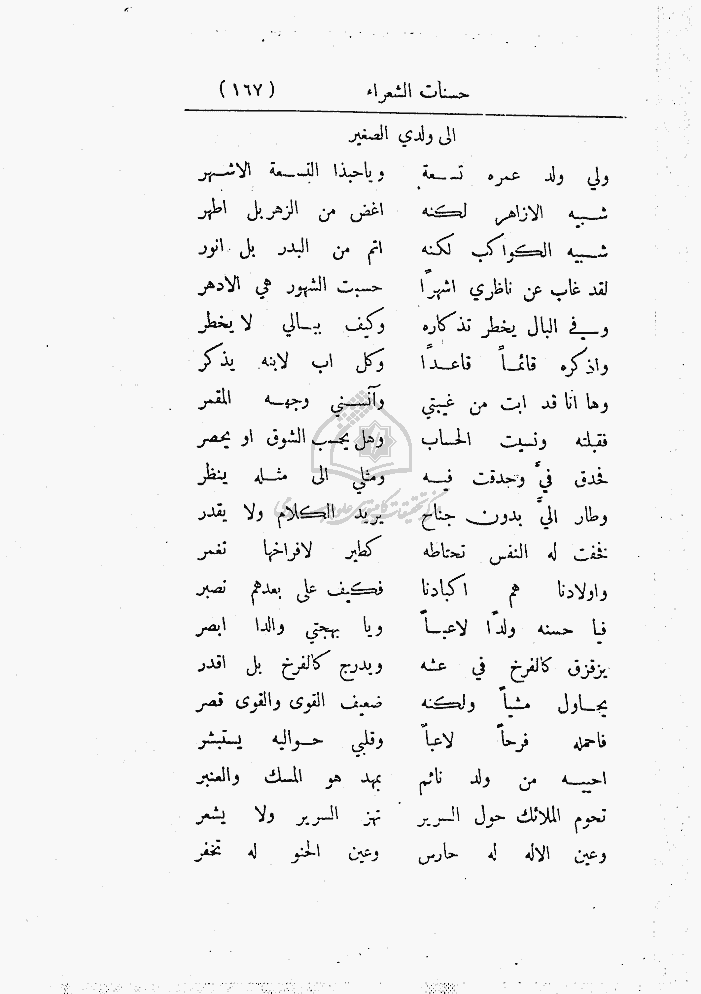 حسنات الشعراء ( ١٦٧ )
الى ولدي الصغير
ولي ولد عمره تسعة وياحبذا التسعة الاشهر
شبيه الازاهر لكنه اغض من الزهر بل اطهر
شبيه الكواكب لكنه اتم من البدر بل انور
لقد غاب عن ناظري اشهراً حسبت الشهور هي الادهر
وفي البال يخطر تذكاره وكيف ببالي لا يخطر
واذكره قائماً قاعداً وكل اب لابنه يذكر
وها انا قد ابت من غيبتي وآنسني وجهه المقمر
فقبلته ونسيت الحساب وهل يحسب الشوق او يحصر
فحدق فيَّ وحدقت فيه ومثلي الى مثله ينظر
وطار اليَّ بدون جناح يريد الكلام ولا يقدر
فخفت له النفس تحتاطه كطير لافراخها تغمر
واولادنا هم اكبادنا فكيف على بعدهم نصبر
فيا حسنه ولداً لاعباً ويا بهجتي والدا ابصر
يزقزق كالفرخ في عشه ويدرج كالفرخ بل اقدر
يحاول مشياً ولكنه ضعيف القوى والقوى قصر
فاحمله فرحاً لاعباً وقلبي حواليه يستبشر
احييه من ولد نائم بمهد هو المسك والعنبر
تحوم الملائك حول السرير تهز السرير ولا يشعر
وعين الاله له حارس وعين الحنو له تخفر